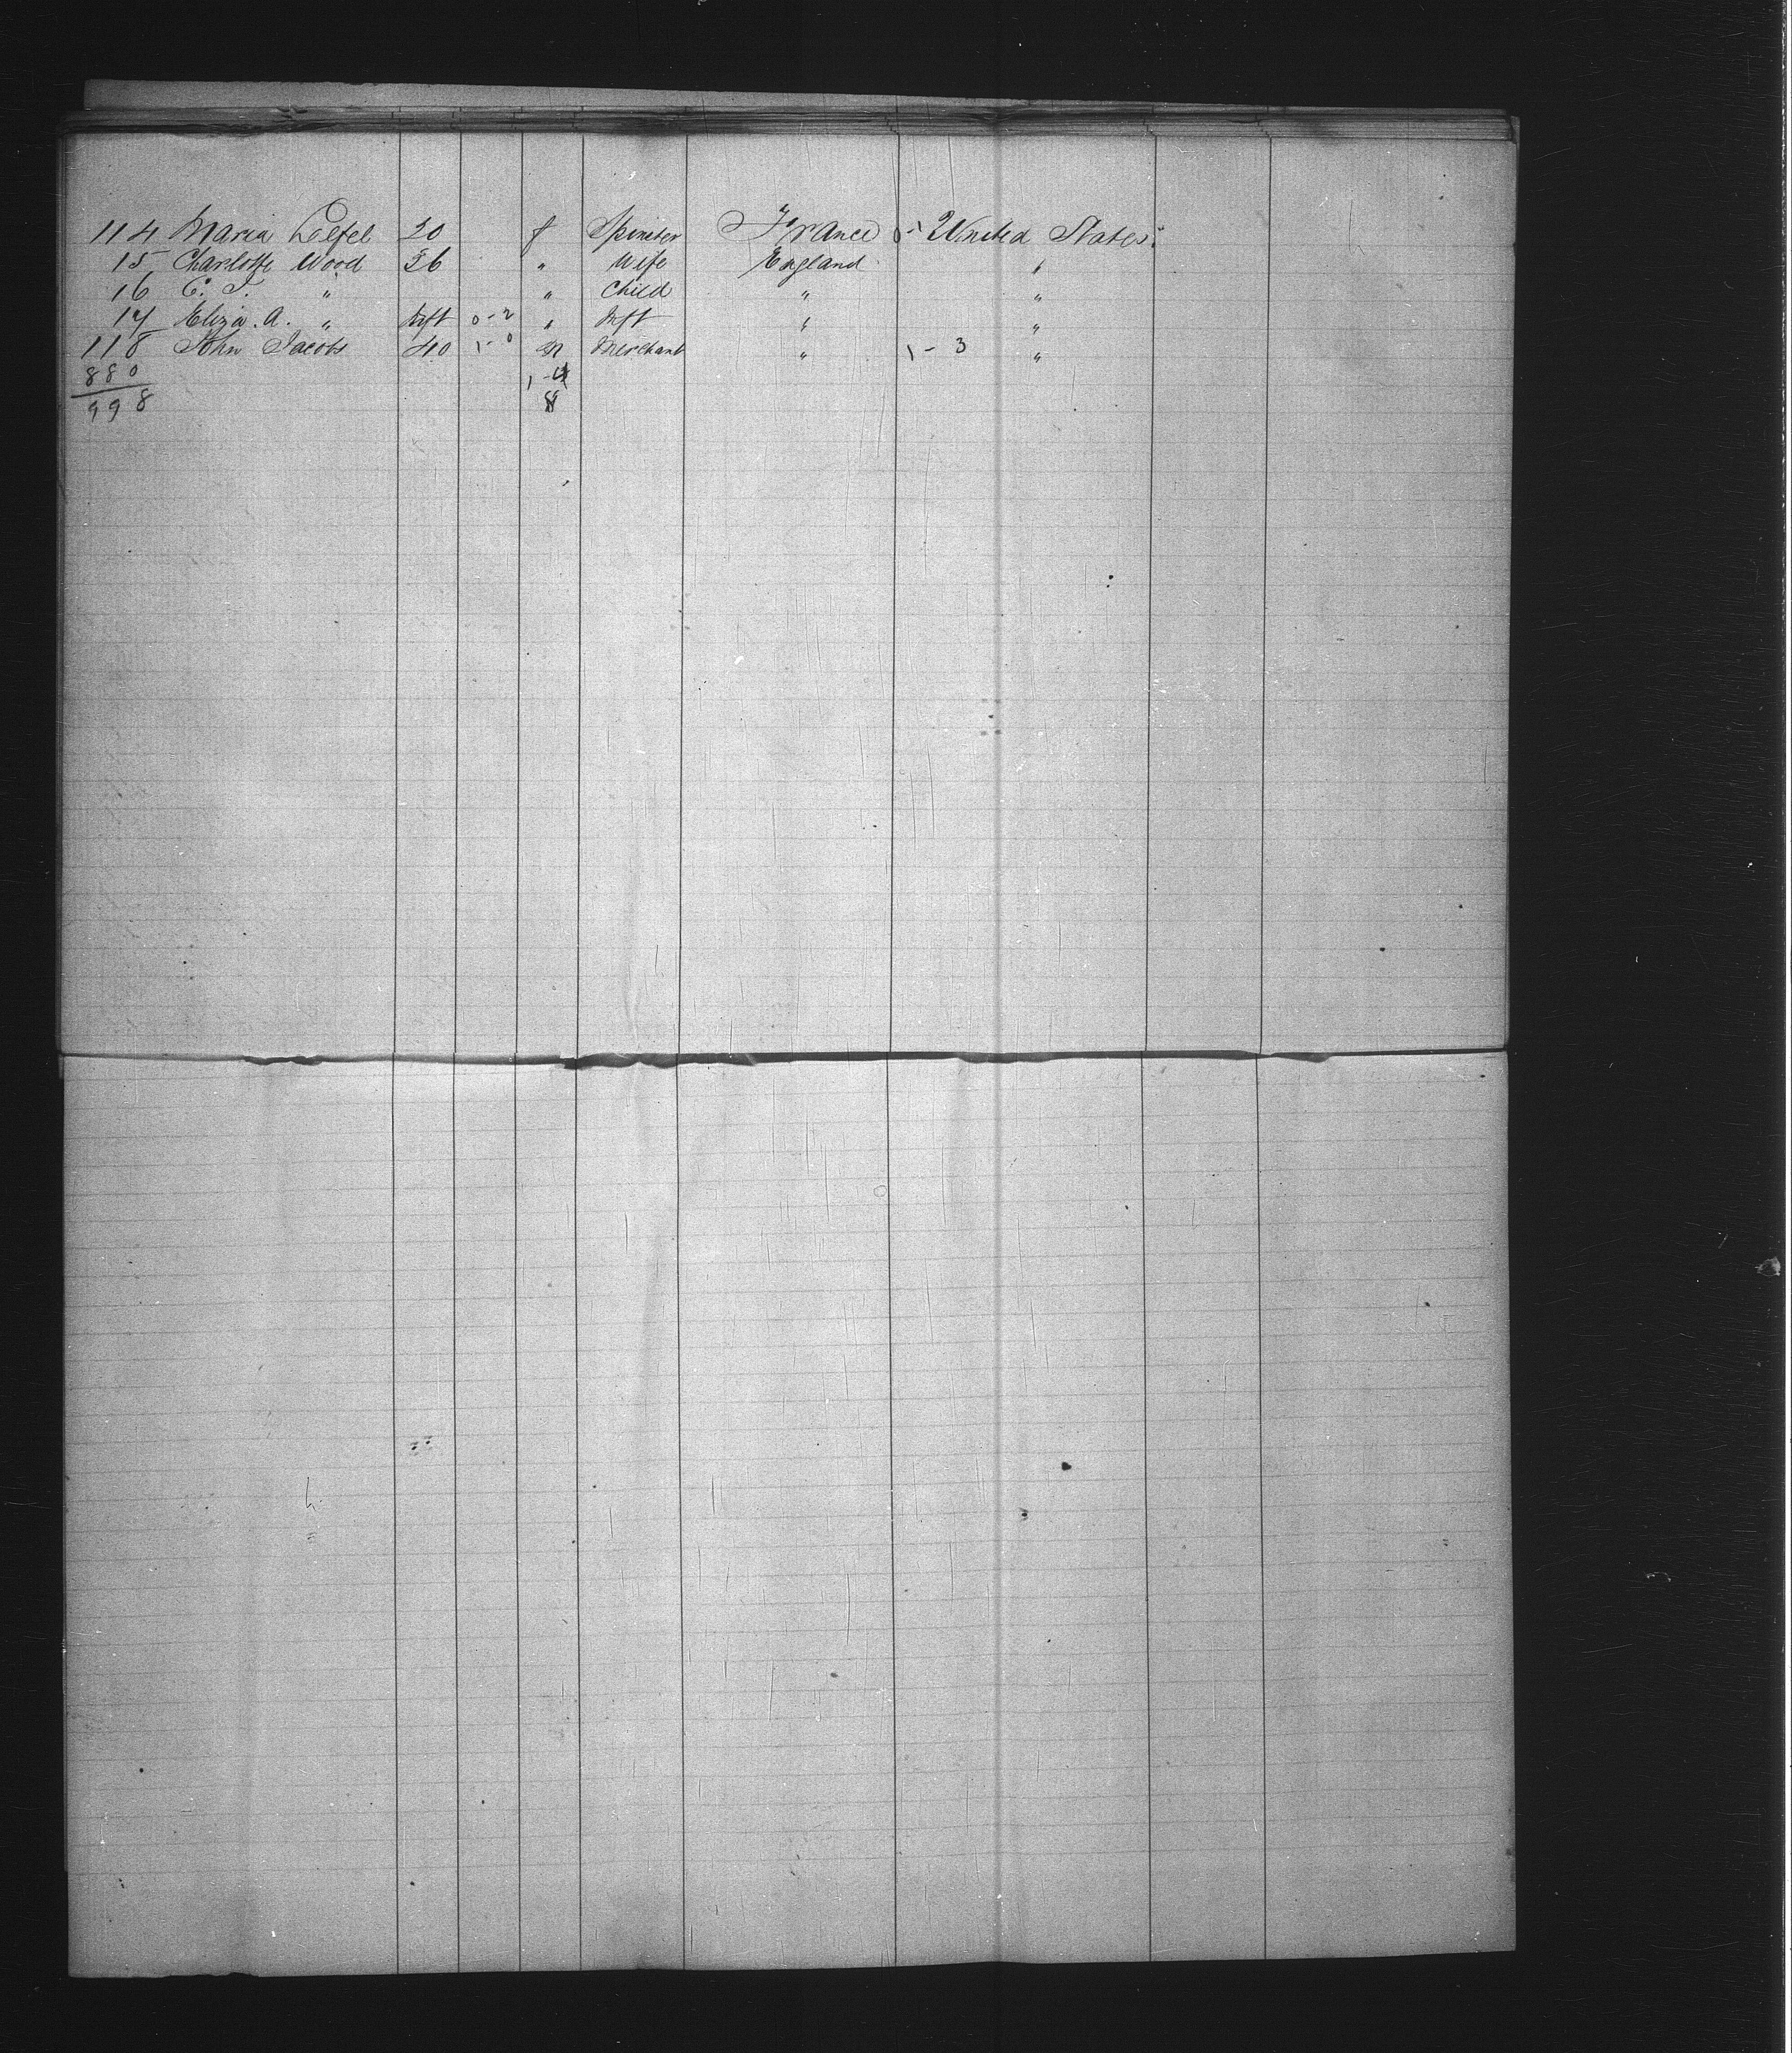 114 Maria Loefel 20 f Spinster France 0-1 United States
15 Charlotte Wood 36 " Wife England "
16 C. T. " " Child " "
17 Eliza. A. " Inft 0-2 " Inft " "
118 John Jacobs 40 1-0 m Merchant " 1-3 "
880 1-4
998 8